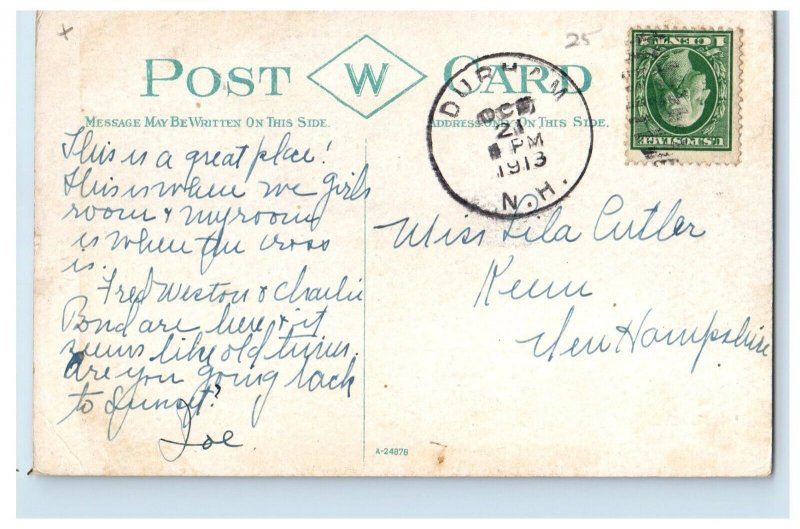 x
25
POST W CARD
MESSAGE MAY BE WRITTEN ON THIS SIDE.
ADDRESS ONLY ON THIS SIDE.
DURHAM
OCT
21
PM
1913
N.H.
1 CENT 1
U.S. POSTAGE
This is a great place!
This is where we girls
room & my room
is where the cross
is.
Fred Weston & Charlie
Bond are here & it
seems like old times.
Are you going back
to Sunset?
Joe
Miss Lila Cutler
Keene
New Hampshire
A-24878